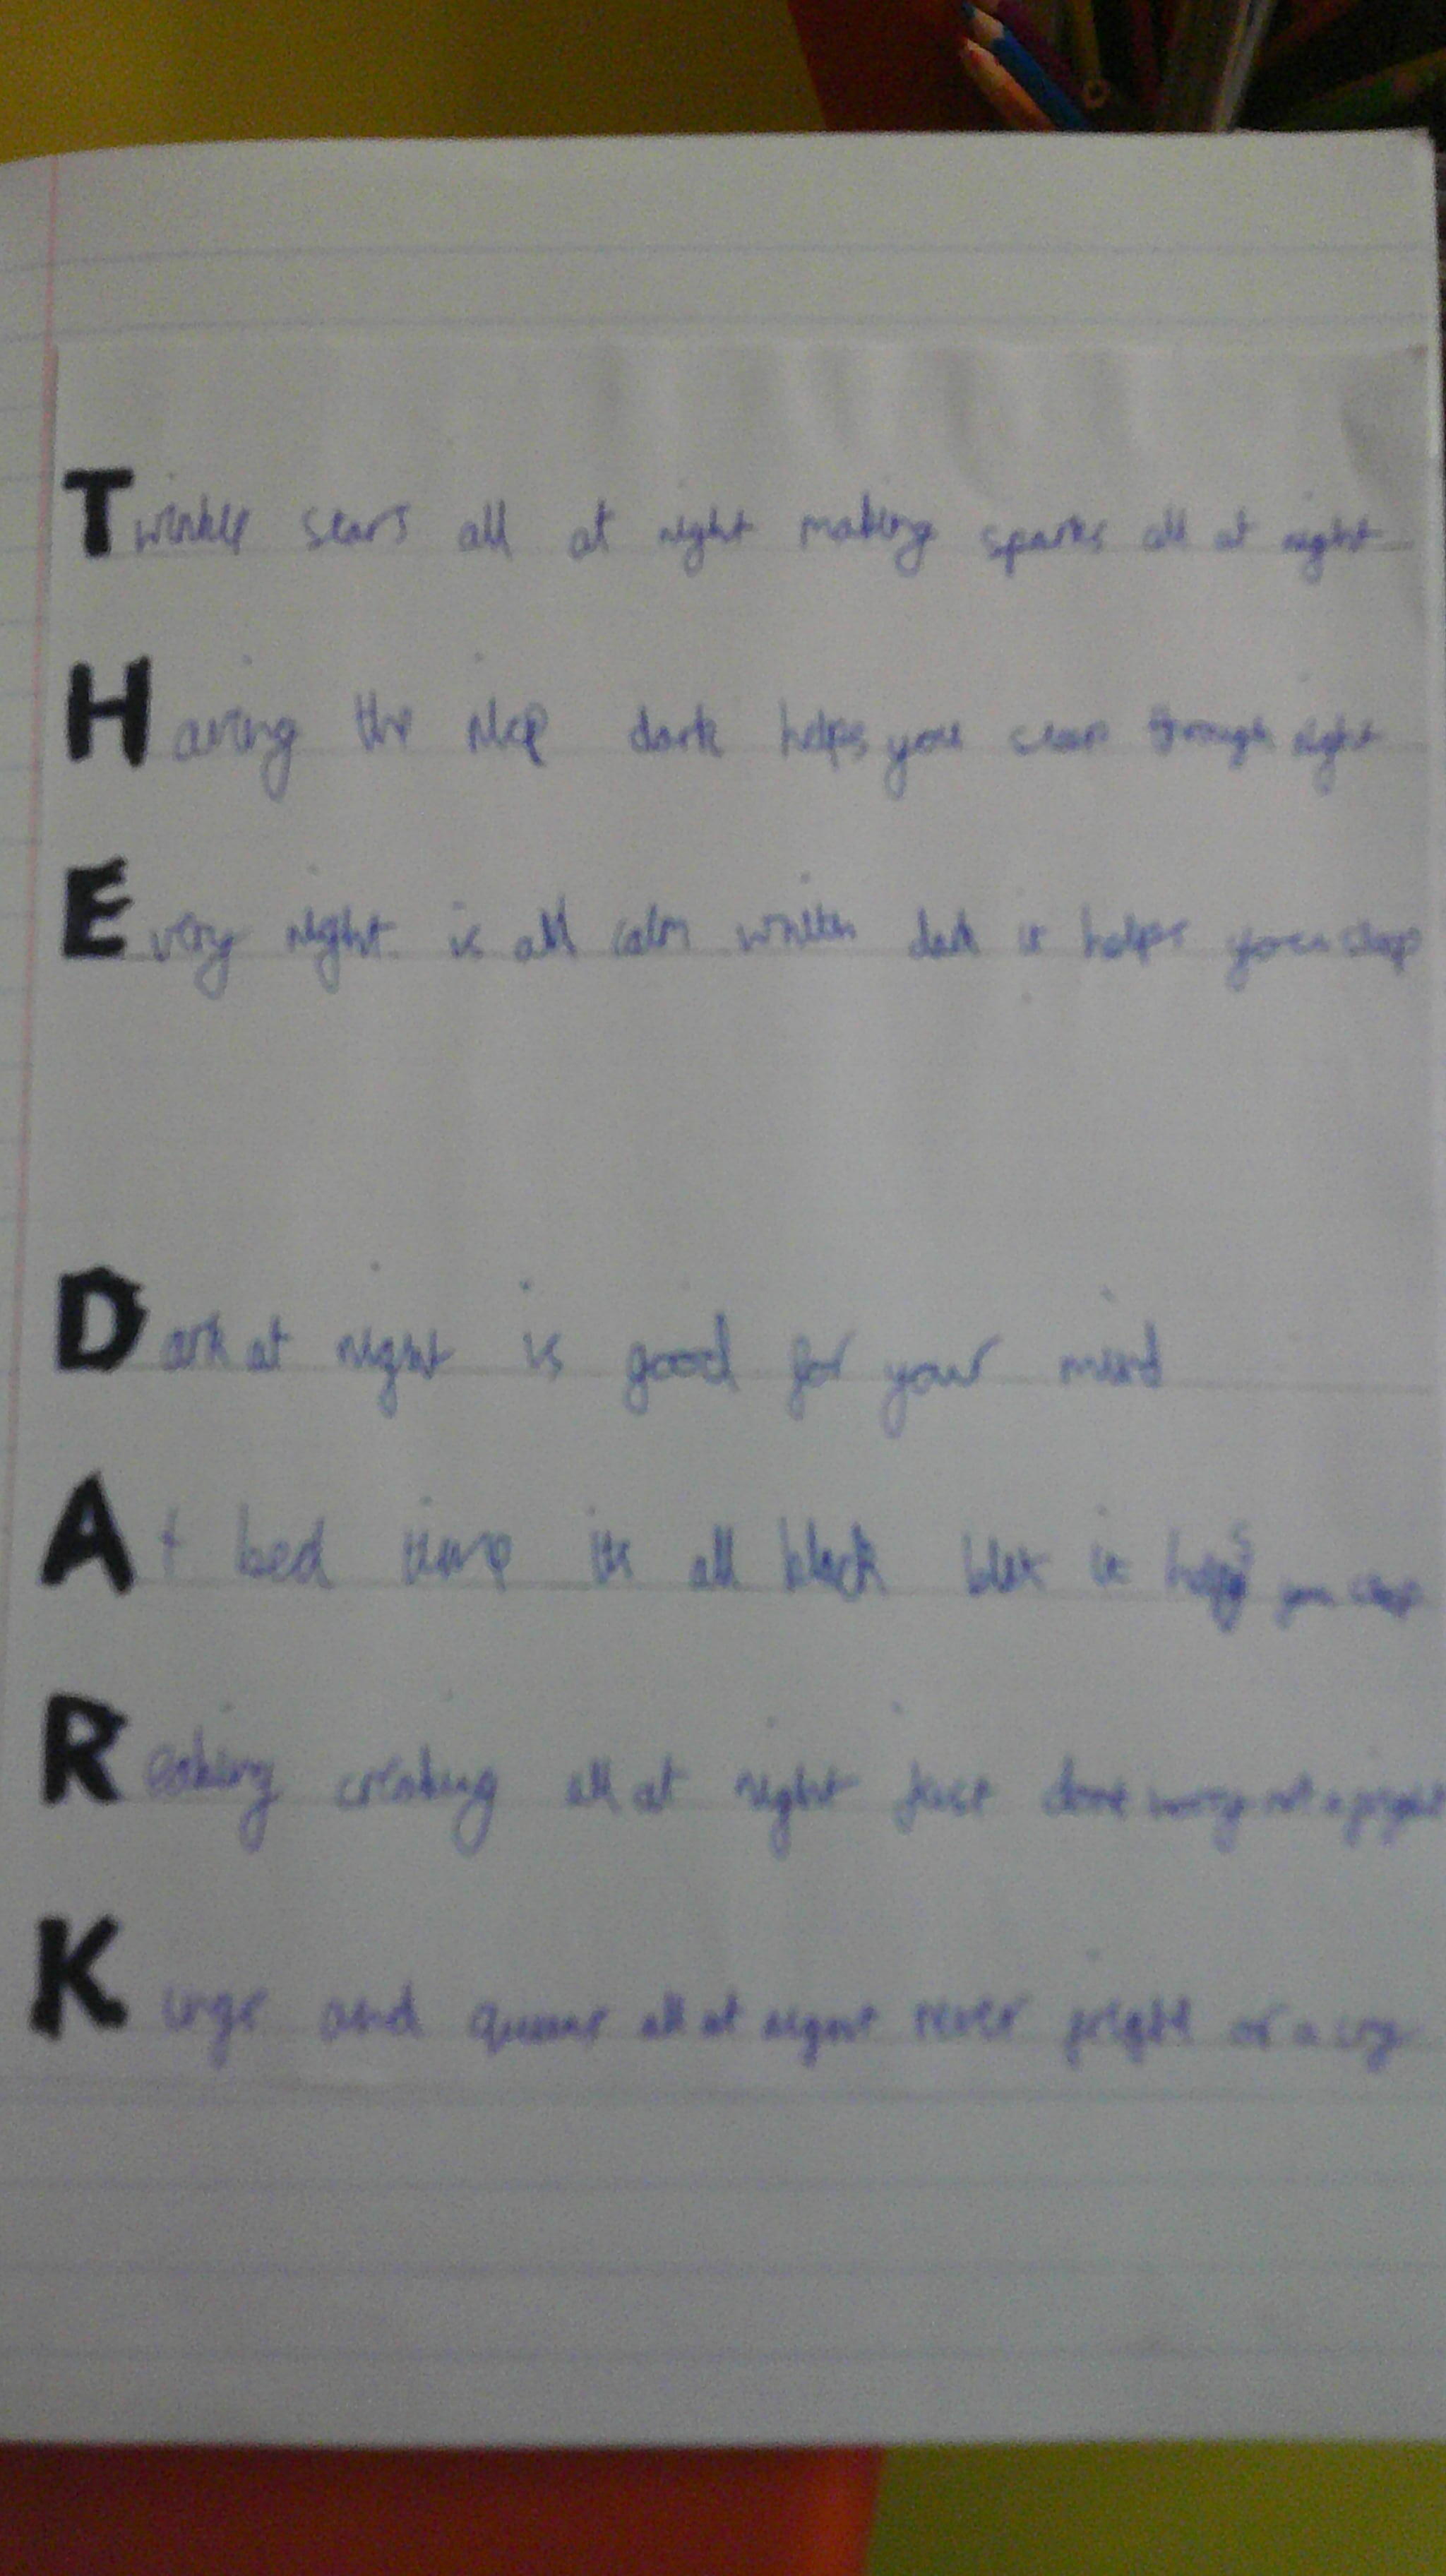 Twinkle stars all at night making sparks all at night
Having the nice dark helps you through night
Every night is all calm dark it helps you sleep
Dark at night is good for your mind
At bed time its all black but it helps you sleep
all at night just dont worry not a fright
Kings and queens all at night never fright or a cry